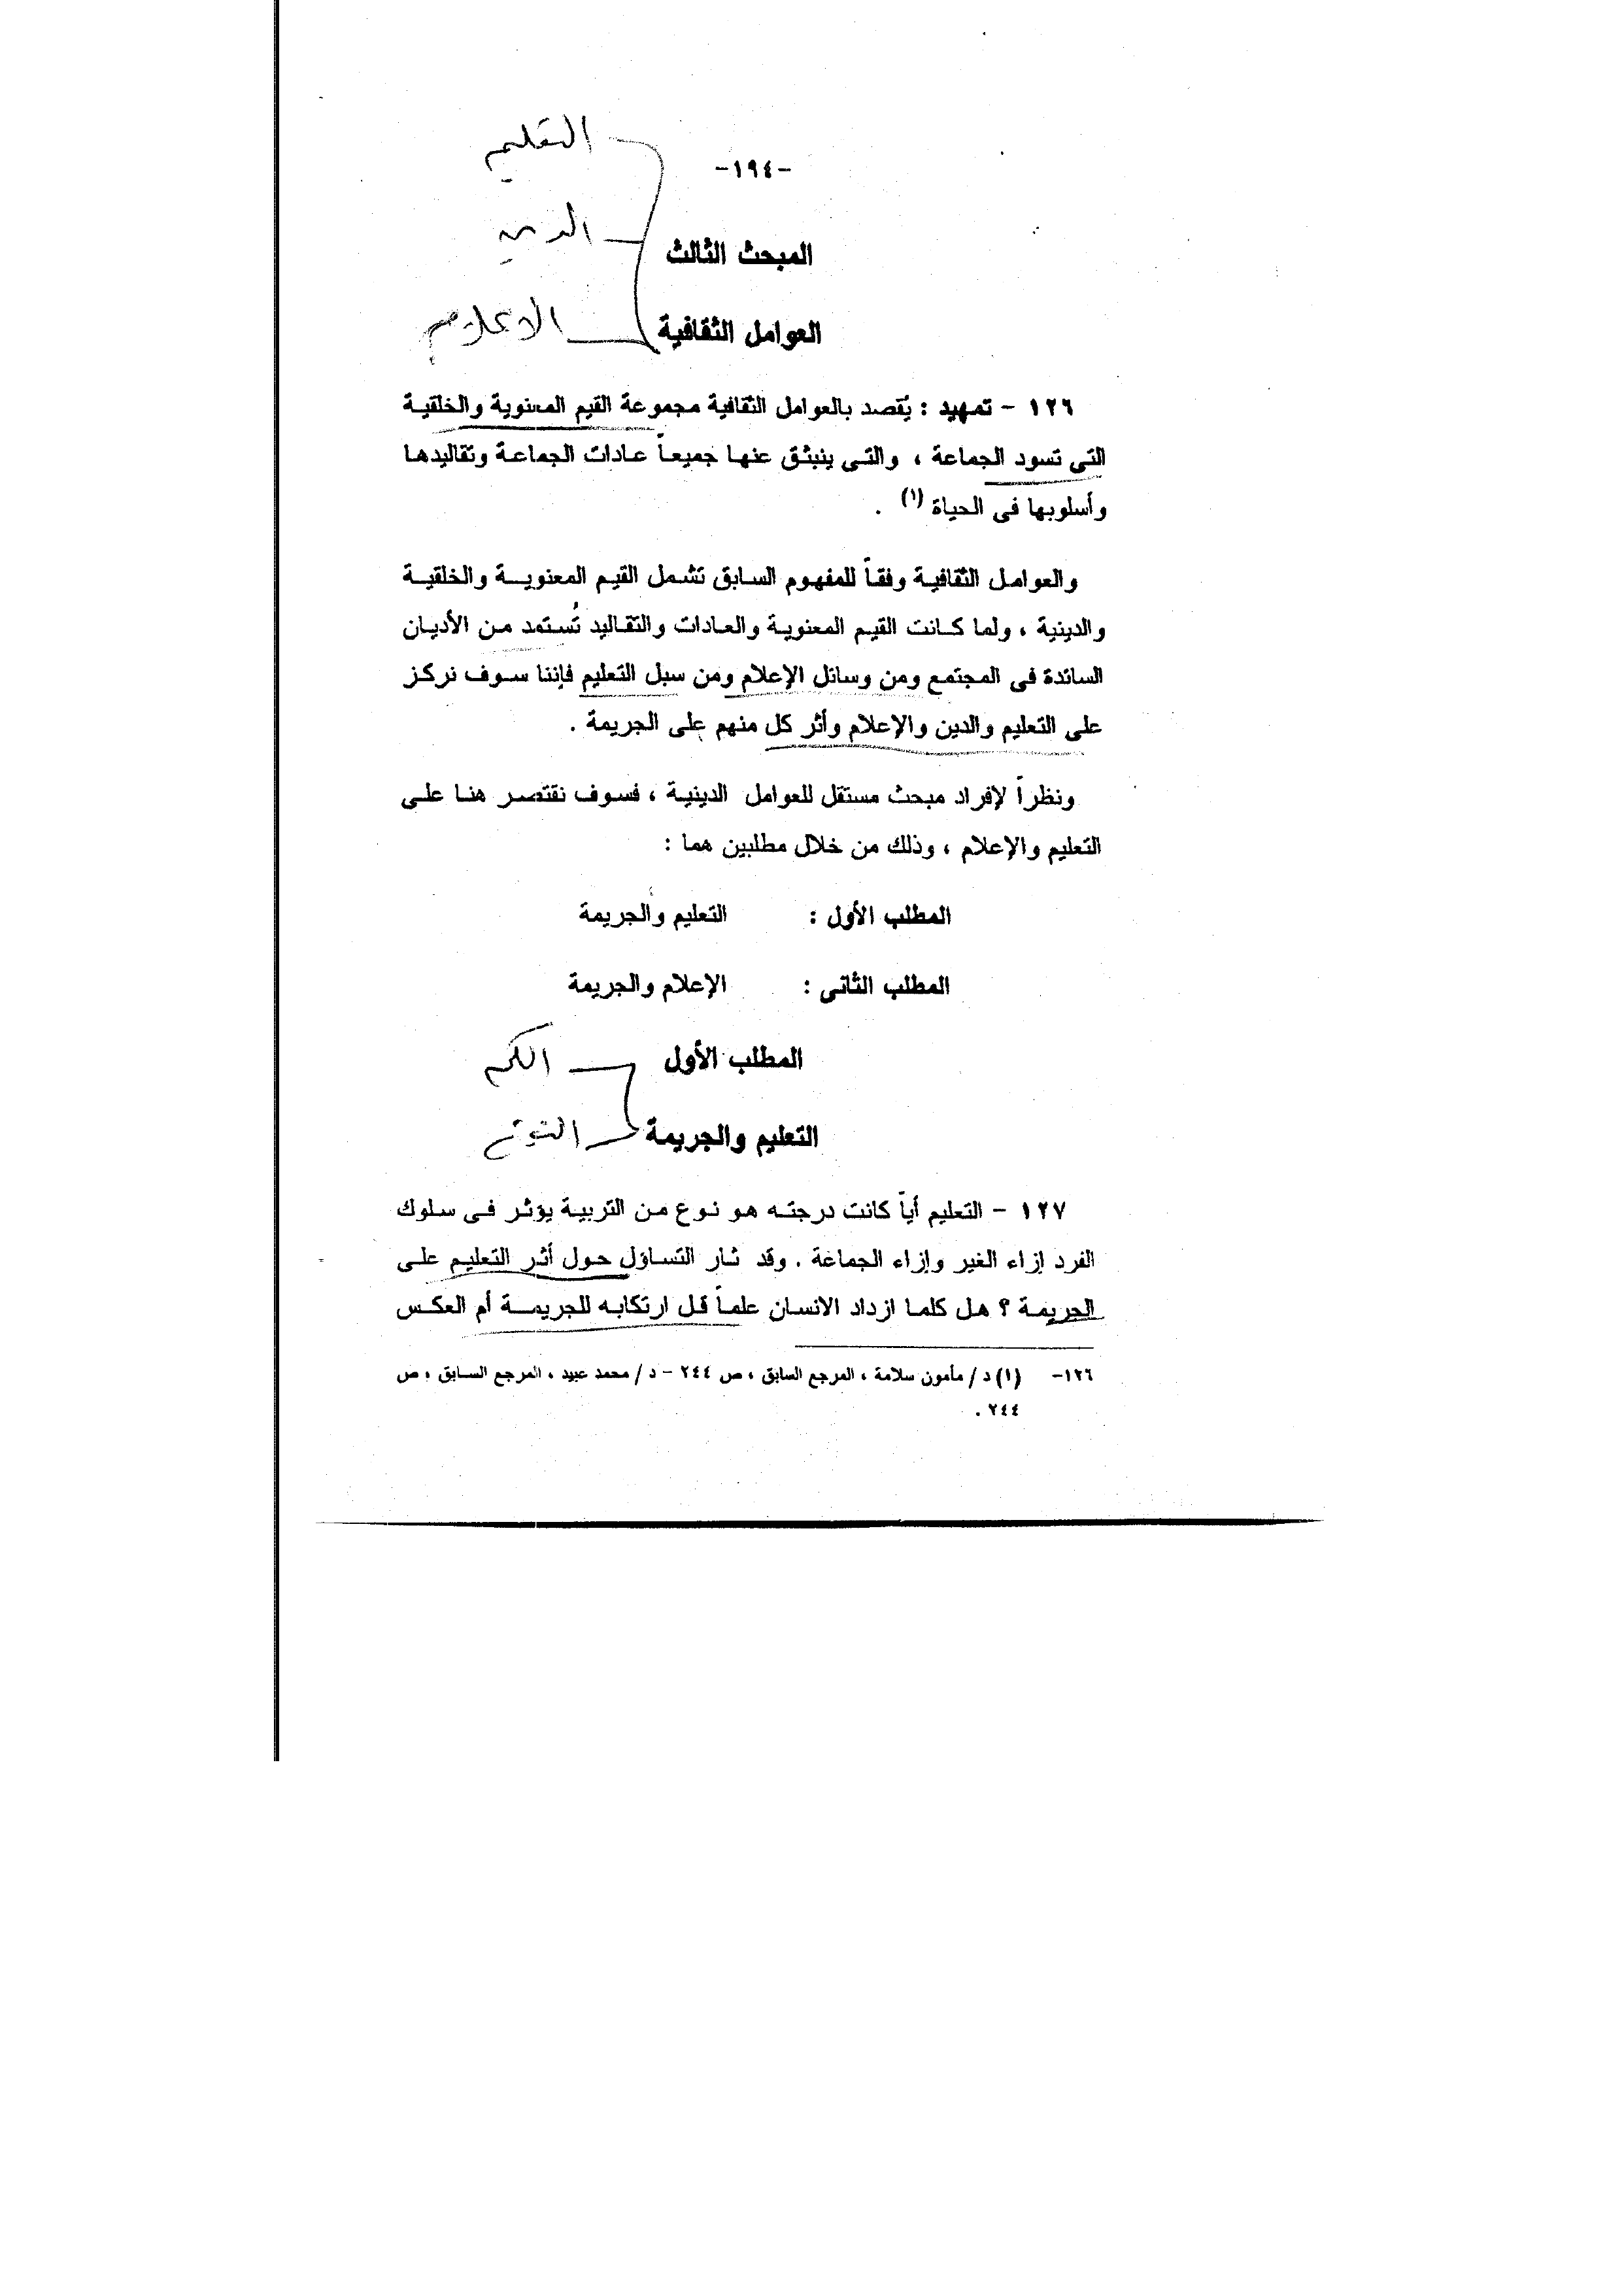 التعليم
-١٩٤-
الدين
المبحث الثالث
الاعلام
العوامل الثقافية
١٢٦ - تمهيد : يُقصد بالعوامل الثقافية مجموعة القيم المعنوية والخلقية
التى تسود الجماعة ، والتى ينبثق عنها جميعاً عادات الجماعة وتقاليدها
وأسلوبها فى الحياة (١) .
والعوامل الثقافية وفقاً للمفهوم السابق تشمل القيم المعنوية والخلقية
والدينية ، ولما كانت القيم المعنوية والعادات والتقاليد تُستمد من الأديان
السائدة فى المجتمع ومن وسائل الإعلام ومن سبل التعليم فإننا سوف نركز
على التعليم والدين والإعلام وأثر كل منهم على الجريمة .
ونظراً لإفراد مبحث مستقل للعوامل الدينية ، فسوف نقتصر هنا على
التعليم والإعلام ، وذلك من خلال مطلبين هما :
المطلب الأول : التعليم والجريمة
المطلب الثانى : الإعلام والجريمة
المطلب الأول
الكم
التعليم والجريمة
١٢٧ - التعليم أياً كانت درجته هو نوع من التربية يؤثر فى سلوك
الفرد إزاء الغير وإزاء الجماعة . وقد ثار التساؤل حول أثر التعليم على
الجريمة ؟ هل كلما ازداد الانسان علماً قل ارتكابه للجريمة أم العكس
١٢٦- (١) د / مأمون سلامة ، المرجع السابق ، ص ٢٤٤ - د / محمد عبيد ، المرجع السابق ، ص
٢٤٤ .